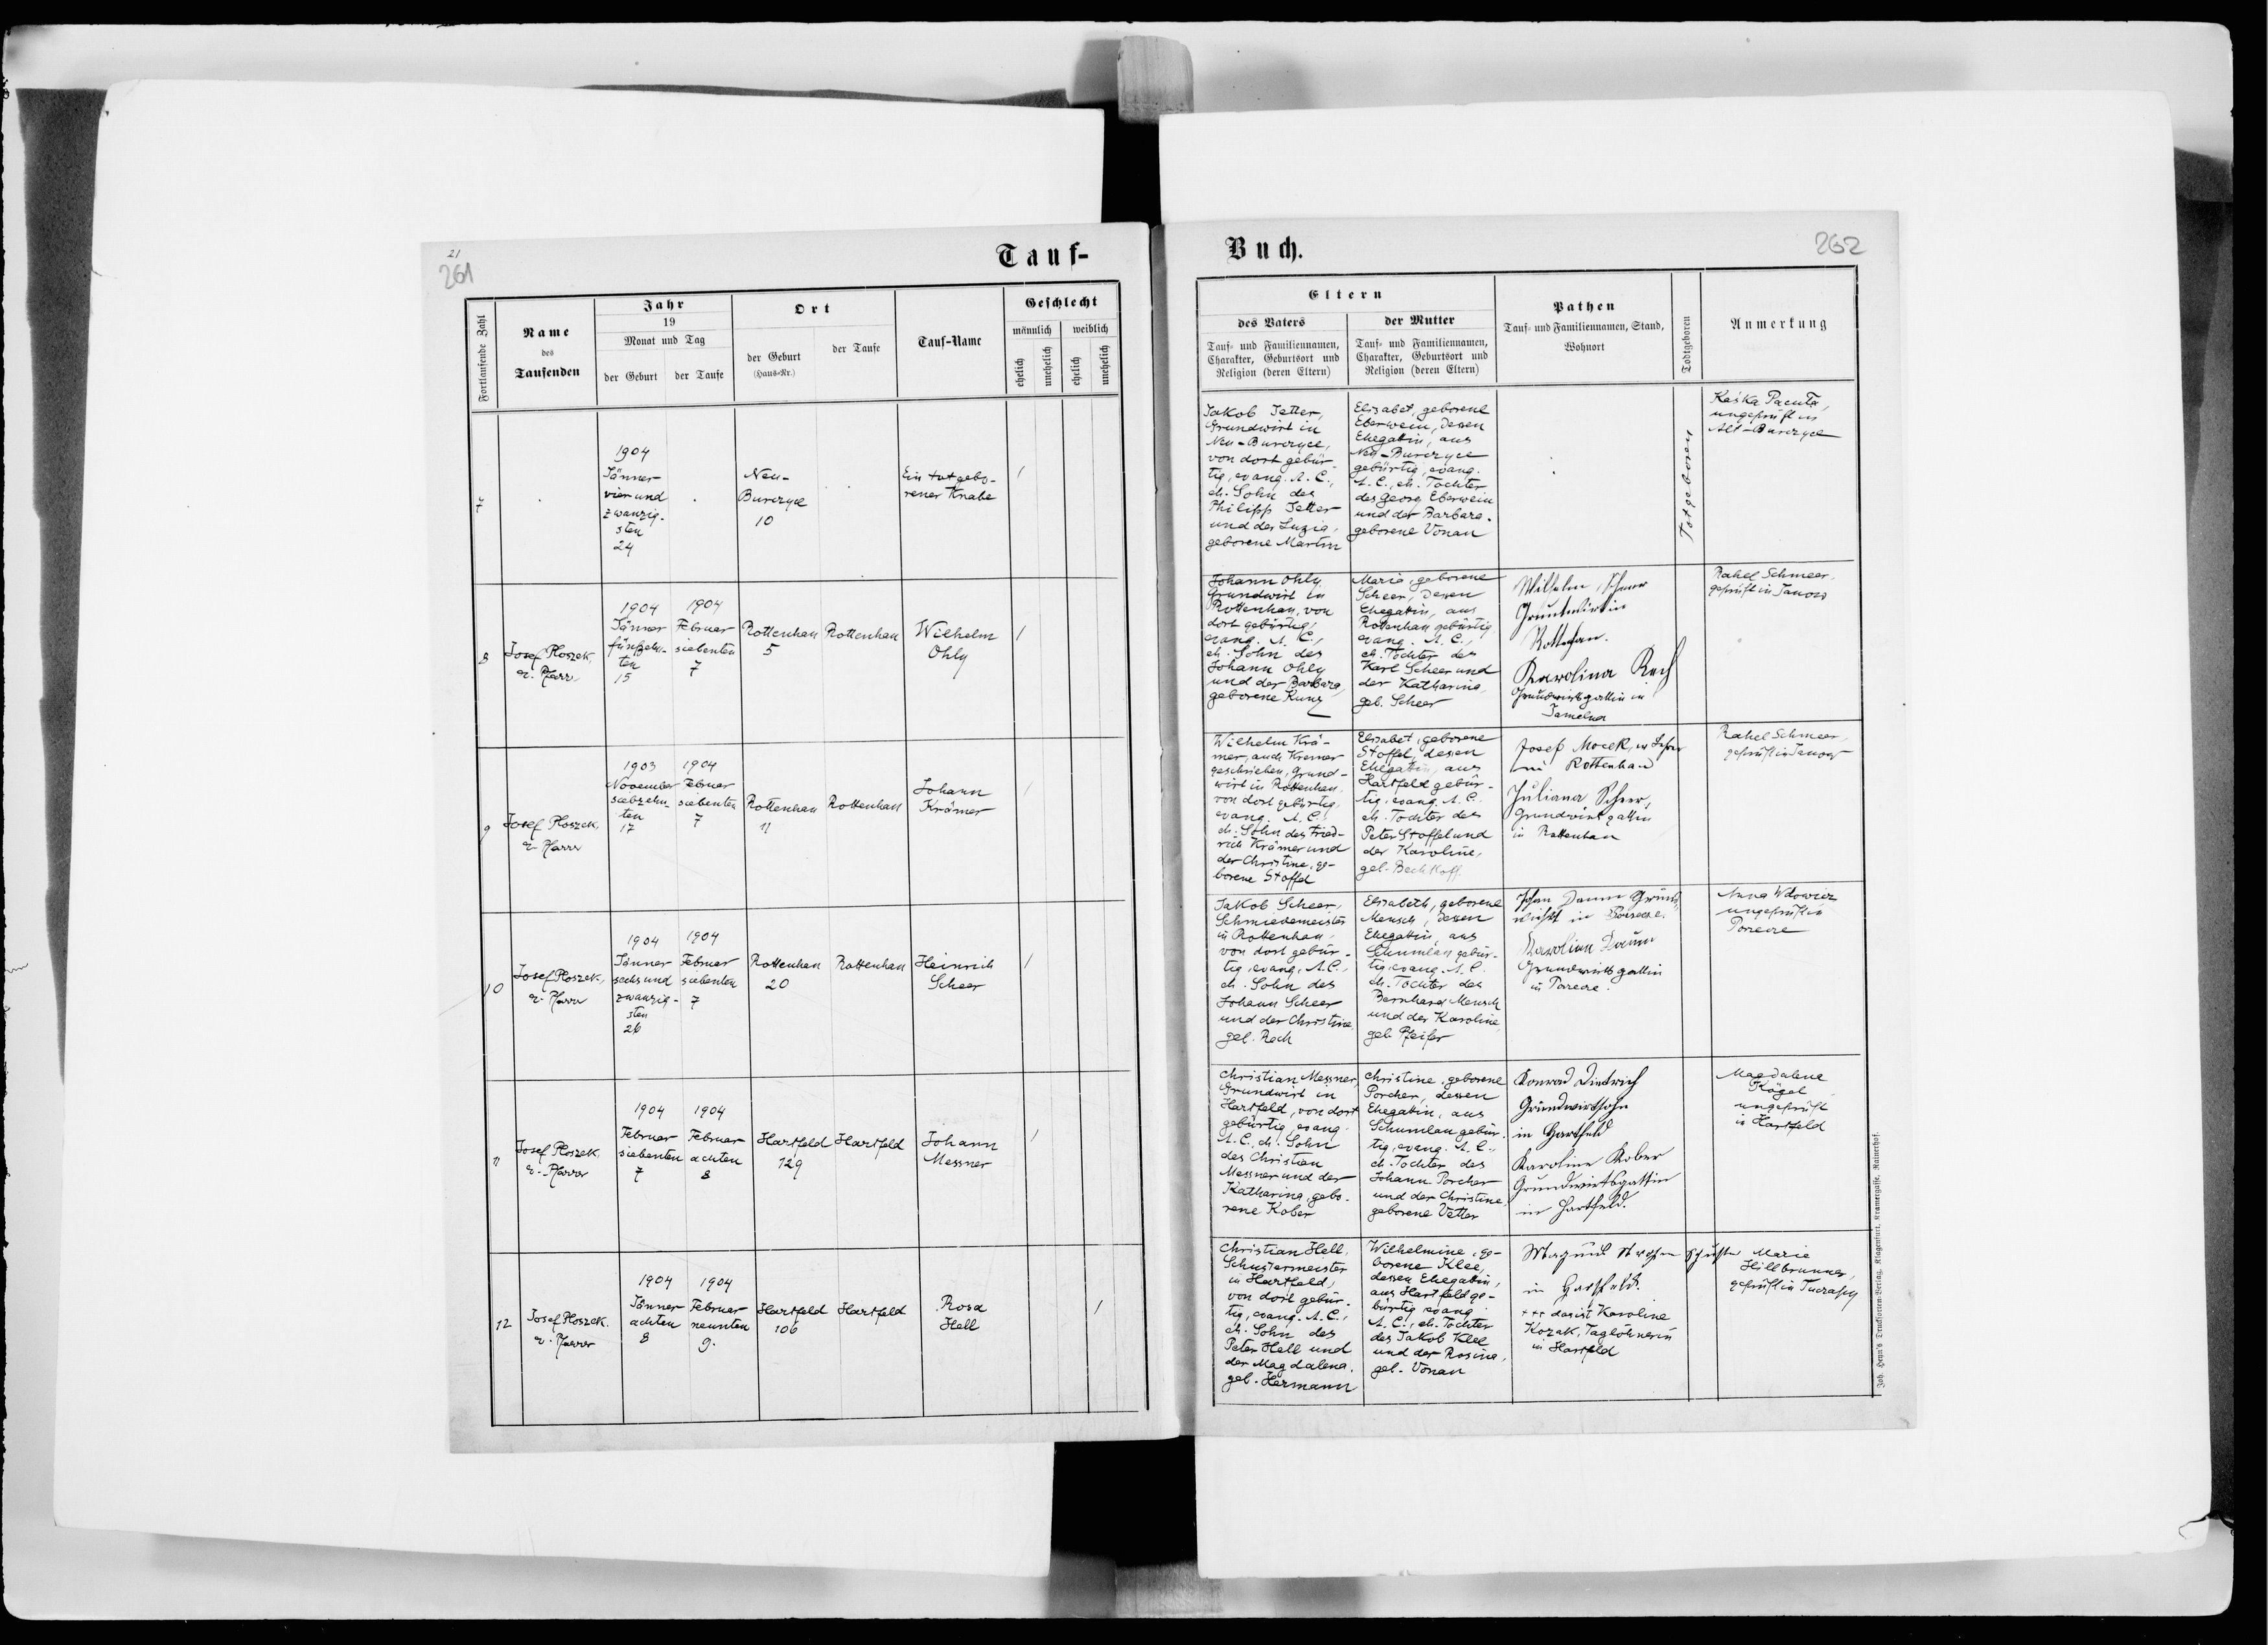 21
261
Tauf-
Fortlaufende Zahl
Name
des
Taufenden
Jahr
19
Monat und Tag
der Geburt
der Taufe
Ort
der Geburt
(Haus-Nr.)
der Taufe
Tauf-Name
Geschlecht
männlich
weiblich
ehelich
unehelich
ehelich
unehelich
7
1904
Jänner
vier und
zwanzig-
sten
24
Neu-
Burczyce
10
Ein totgebo-
rener Knabe
8
Josef Ploszek,
ev. Pfarr.
1904
Jänner
fünfzehn-
ten
15
1904
Februar
siebenten
7
Rottenhan
5
Rottenhan
Wilhelm
Ohly
9
Josef Ploszek,
ev. Pfarrr
1903
November
siebzehn-
ten
17
1904
Februar
siebenten
7
Rottenhan
11
Rottenhan
Johann
Krämer
10
Josef Ploszek,
ev. Pfarrr
1904
Jänner
sechs und
zwanzig-
sten
26
1904
Februar
siebenten
7
Rottenhan
20
Rottenhan
Heinrich
Scheer
11
Josef Ploszek,
ev. Pfarrr
1904
Februar
siebenten
7
1904
Februar
achten
8
Hartfeld
129
Hartfeld
Johann
Messner
12
Josef Ploszek.
ev. Pfarrr
1904
Jänner
achten
8
1904
Februar
neunten
9.
Hartfeld
106
Hartfeld
Rosa
Hell
Buch.
262
Eltern
des Vaters
Tauf- und Familiennamen,
Charakter, Geburtsort und
Religion (deren Eltern)
der Mutter
Tauf- und Familiennamen,
Charakter, Geburtsort und
Religion (deren Eltern)
Pathen
Tauf- und Familiennamen, Stand,
Wohnort
Todtgeboren
Anmerkung
Jakob Jetter,
Grundwirt in
Neu-Burczyce,
von dort gebür-
tig, evang. A. C.,
eh. Sohn des
Philipp Jetter
und der Luzia,
geborene Martin
Elisabet, geborene
Eberwein, dessen
Ehegattin, aus
Neu-Burczyce
gebürtig, evang.
A. C., eh. Tochter
des Georg Eberwein
und der Barbara,
geborene Vonau
Totgeboren
Kaśka Pacuta,
ungeprüft in
Alt-Burczyce
Johann Ohly,
Grundwirt in
Rottenhan, von
dort gebürtig,
evang. A. C.,
eh. Sohn des
Johann Ohly
und der Barbara,
geborene Kunz
Maria, geborene
Scheer, dessen
Ehegattin, aus
Rottenhan gebürtig
evang. A. C.,
eh. Tochter des
Karl Scheer und
der Katharina,
geb. Scheer
Wilhelm Scheer
Grundwirt in
Rottehan.
Karolina Rech
Grundwirtsgattin in
Jamelna
Rahel Schmeer,
geprüft in Janow
Wilhelm Krä-
mer, auch Kremer
geschrieben, Grund-
wirt in Rottenhan,
von dort gebürtig,
evang. A. C.,
eh. Sohn des Fried-
rich Krämer und
der Christine, ge-
borene Stoffel
Elisabet, geborene
Stoffel, dessen
Ehegattin, aus
Hartfeld gebür-
tig, evang. A. C.
eh. Tochter des
Peter Stoffel und
der Karoline,
geb. Bechtloff
Josef Mocek, ev Lehrer
in Rottenhan
Juliana Scheer,
Grundwirtgattin
in Rottenhan
Rahel Schmeer,
geprüft in Janow
Jakob Scheer,
Schmiedemeister
in Rottenhan,
von dort gebür-
tig, evang. A. C.,
eh. Sohn des
Johann Scheer
und der Christine,
geb. Rech
Elisabeth, geborene
Mensch, dessen
Ehegattin, aus
Schumlau gebür-
tig, evang. A. C.
eh. Tochter des
Bernhard Mensch
und der Karoline,
geb. Pfeifer
Grund-
in Porzecze.
Karolina Daum
Grundwirtsgattin
in Porzecze.
Anna Wdowicz
ungeprüft in
Porzecze
Christian Messner,
Grundwirt in
Hartfeld, von dort
gebürtig, evang.
A. C., eh. Sohn
des Christian
Messner und der
Katharina, gebo-
rene Kober
Christine, geborene
Porcher, dessen
Ehegattin, aus
Schumlau gebür-
tig, evang. A. C.,
eh. Tochter des
Johann Porcher
und der Christine,
geborene Vetter
Konrad Dietrich
Grundwirtsohn
in Hartfeld
Karoline Kober
Grundwirtsgattin
in Hartfeld.
Magdalena
Kögel
ungeprüft
in Hartfeld
Christian Hell,
Schustermeister
in Hartfeld,
von dort gebür-
tig, evang. A. C.,
eh. Sohn des
Peter Hell und
der Magdalena,
geb. Hermann
Wilhelmine, ge-
borene Klee,
dessen Ehegattin,
aus Hartfeld ge-
bürtig, evang.
A. C., eh. Tochter
des Jakob Klee
und der Rosina,
geb. Vonau
in Hartfeld.
+++ das ist Karoline
Kozak, Taglöhnerin
in Hartfeld
Marie
Hillbrunner,
geprüft in Tuczapy
Joh. Heyn's Drucksorten-Verlag, Klagenfurt, Kramergasse, Rainerhof.